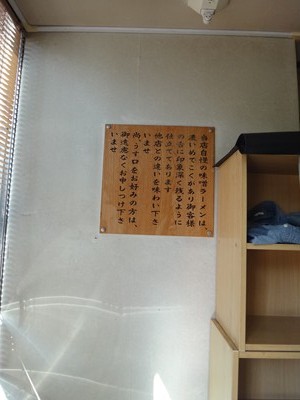 当店自慢の味噌ラーメンは
濃いめでこくがあり御客様
の舌に印象深く残るように
仕立ててあります
他店との違いを味わい下さ
いませ
尚、うす口をお好みの方は、
御遠慮なくお申しつけ下さ
いませ